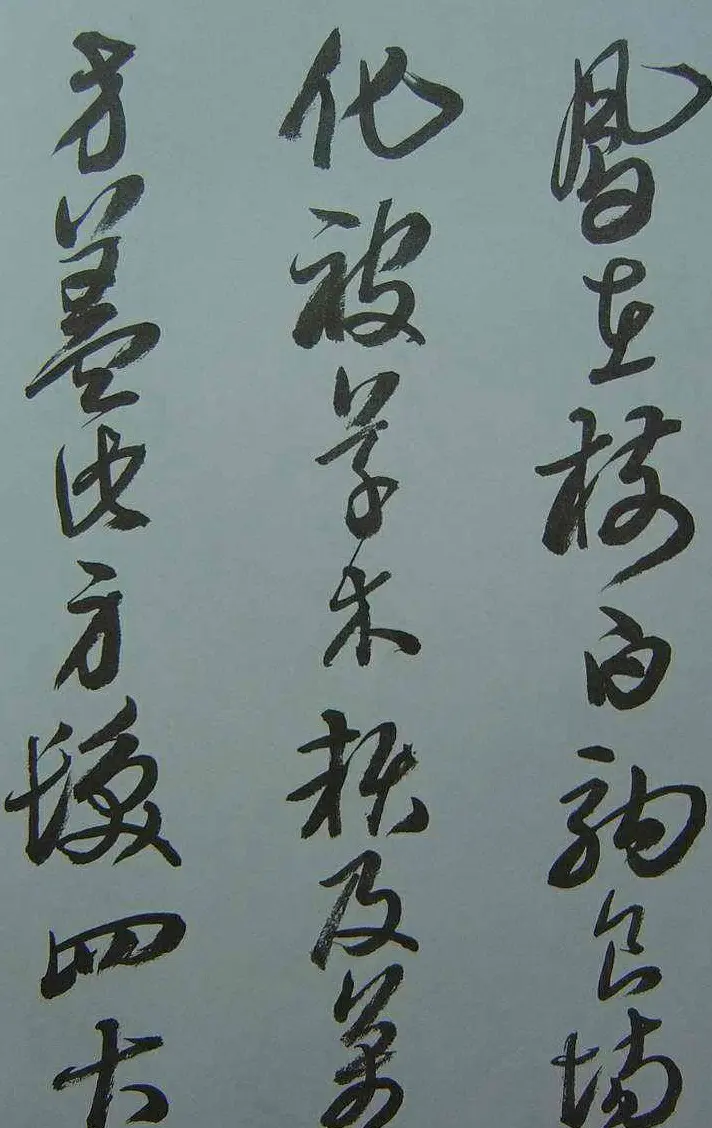 鳳在樹白駒食場
化被草木賴及萬
方蓋此身髮四大